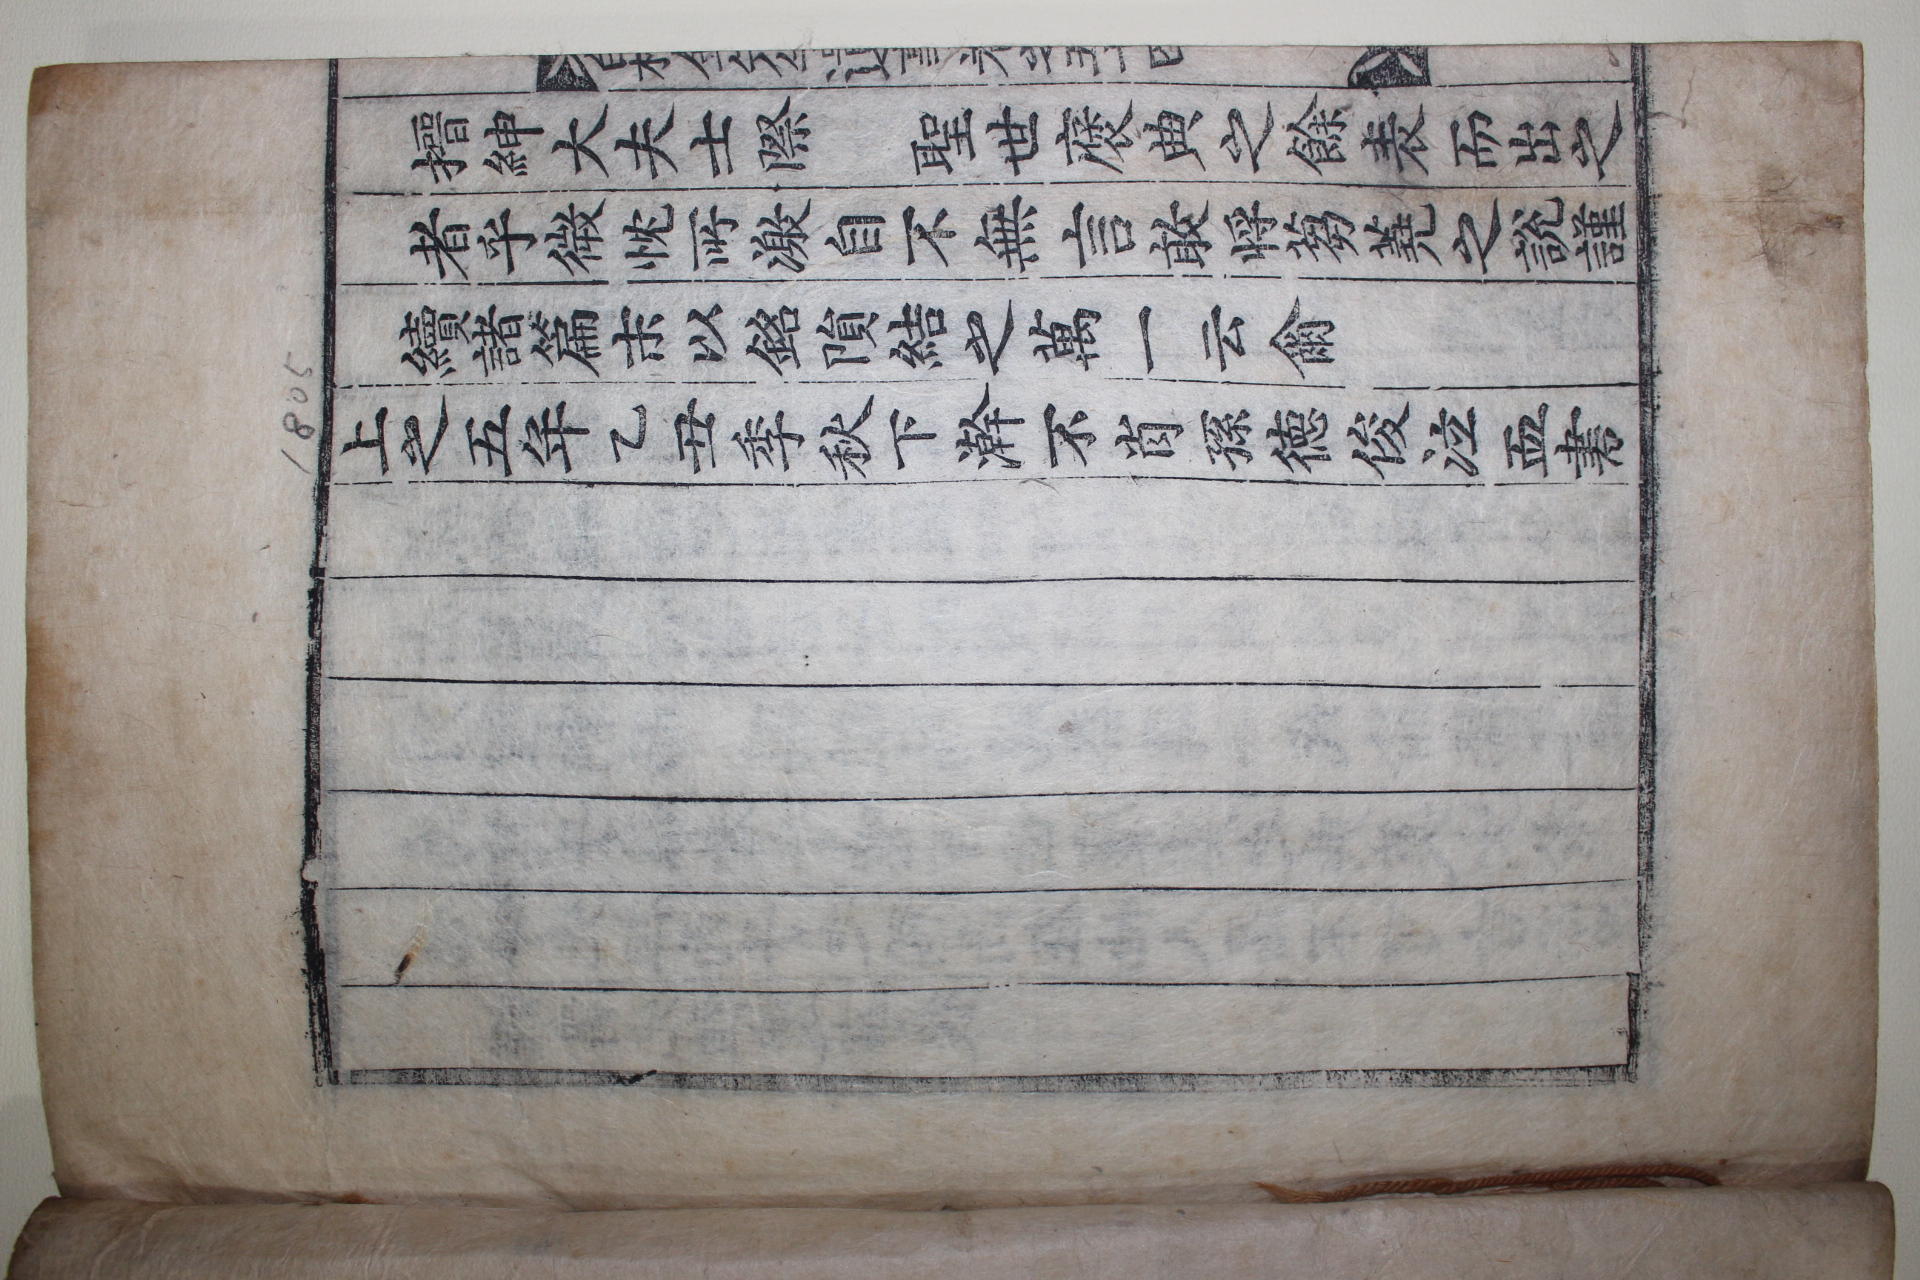 搢紳大夫士際 聖世褒典之餘表而出之
者乎微忱所激自不無言敢將蒭蕘之說謹
續諸篇末以銘隕結之萬一云爾
上之五年乙丑季秋下澣不肖孫德俊泣血書
1805